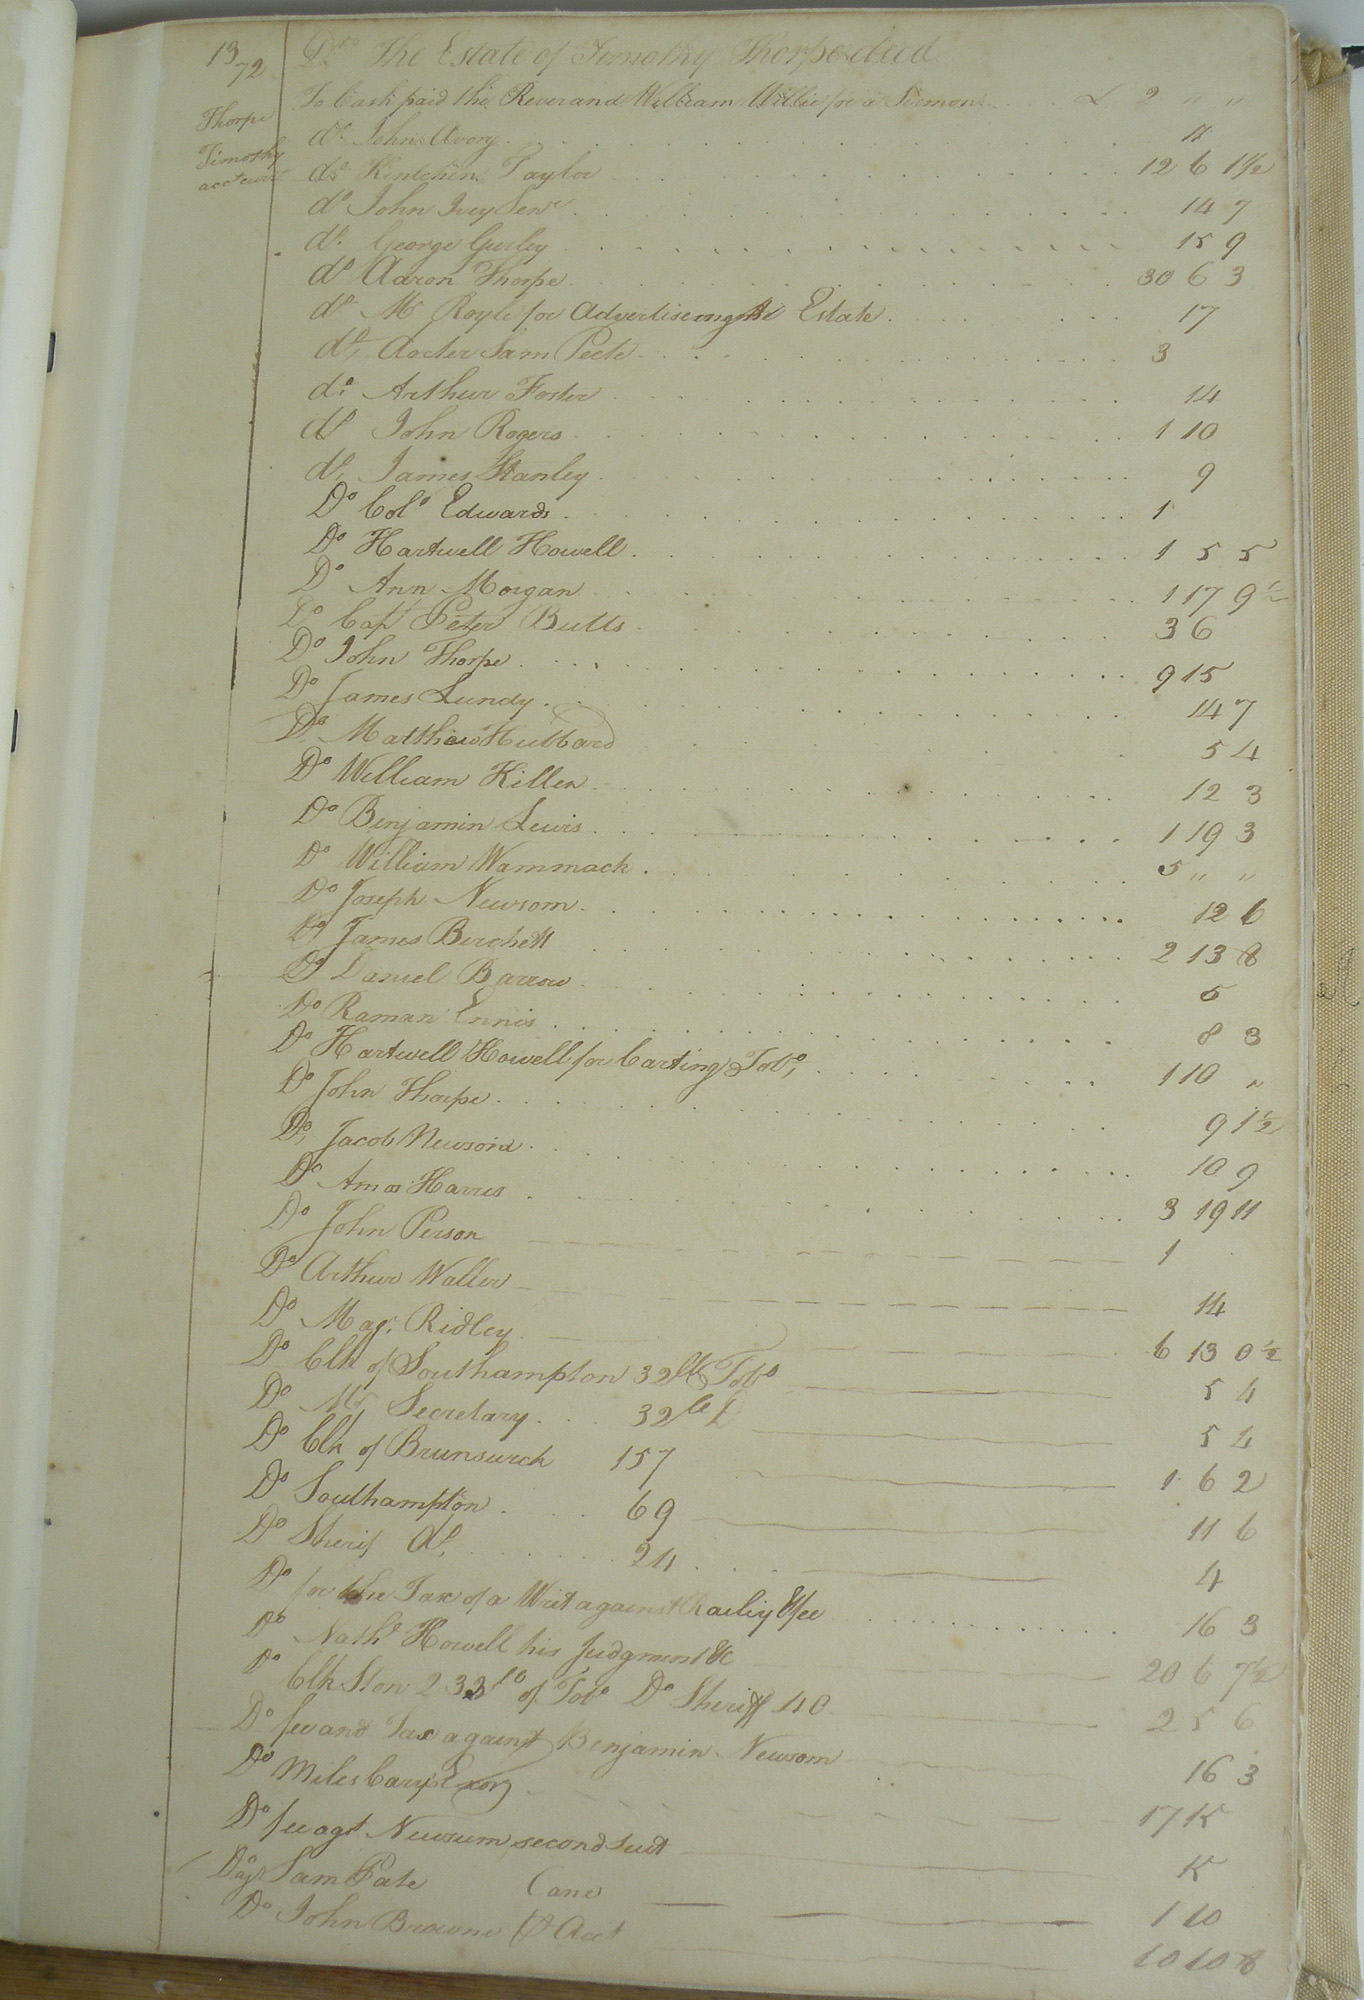 13/72
Thorpe
Timothy
acct curt
Dr. The Estate of Timothy Thorpe decd
To Cash paid the Reverand William Willie for a Sermon . . . . £ 2 " "
do John Avory . . . 11
do Kintchin Taylor . . . 12 6 1 1/2
do John Ivey Senr . . . 14 7
do George Gurley . . . 15 9
do Aaron Thorpe . . . 30 6 3
do Mr Royle for Advertiseing the Estate . . . 17
do Docter Sam Peete . . . 3
do Arthur Foster . . . 14
do John Rogers . . . 1 10
do James Stanley . . . 9
Do Colo Edwards . . . 1
Do Hartwell Howell . . . 1 5 5
Do Ann Morgan . . . 1 17 9 1/2
Do Capt Peter Butts . . . 3 6
Do John Thorpe . . . 9 15
Do James Lundy . . . 14 7
Do Matthew Hubbard 5 4
Do William Killen . . . 12 3
Do Benjamin Lewis . . . 1 19 3
Do William Wammack . . . 5 " "
Do Joseph Newsom . . . 12 6
Do James Birchett . . . 2 13 8
Do Daniel Barrow . . . 5
Do Raman Ennis . . . 8 3
Do Hartwell Howell for Carting Tobo, . . . 1 10 "
Do John Thorpe . . . 9 1 1/2
Do, Jacob Newsom . . . 10 9
Do Amos Harris . . . 3 19 11
Do John Person 1
Do Arthur Waller 14
Do Majr. Ridley 6 13 0 1/2
Do Clk of Southampton 32 lb Tobo 5 4
Do Mr Secretary . . . 32 lb 5 4
Do Clk of Brunswick 157 1 6 2
Do Southampton . . . 69 11 6
Do Sherif do, . . . 24 4
Do for the Tax of a Writ against Railiy &fee . . . 16 3
Do Nathl Howell his Judgment &c 20 6 7 1/2
Do Clk Ston 233 lb of Tobo Do Sheriff 40 2 5 6
Do fee and Tax against Benjamin Newsom 16 3
Do Miles Cary Exor 17 15
Do fee agt Newsum second Suit 15
Do Sam Pate Cane 1 10
Do John Browne Acct 10 10 8